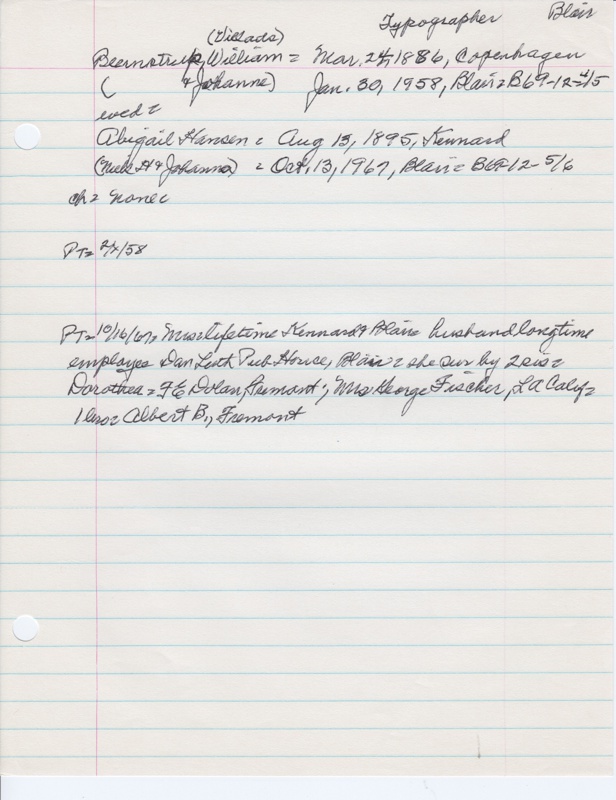 Typographer Blair
(Villads)
Beernstrup, William = Mar. 24, 1886, Copenhagen
( & Johanne) Jan. 30, 1958, Blair = B69-12-4/5
wed =
Abigail Hansen = Aug 13, 1895, Kennard
(Niels H & Johanna) = Oct. 13, 1967, Blair = B69-12-5/6
ch = none
PT= 2/1/58
PT= 10/16/67, Mrs = lifetime Kennard & Blair = husband longtime
employee Dan Luth Pub House, Blair = she sur by 2 sis =
Dorothea = F E Dolan, Fremont; Mrs George Fischer, LA Calif =
1 bro = Albert B., Fremont